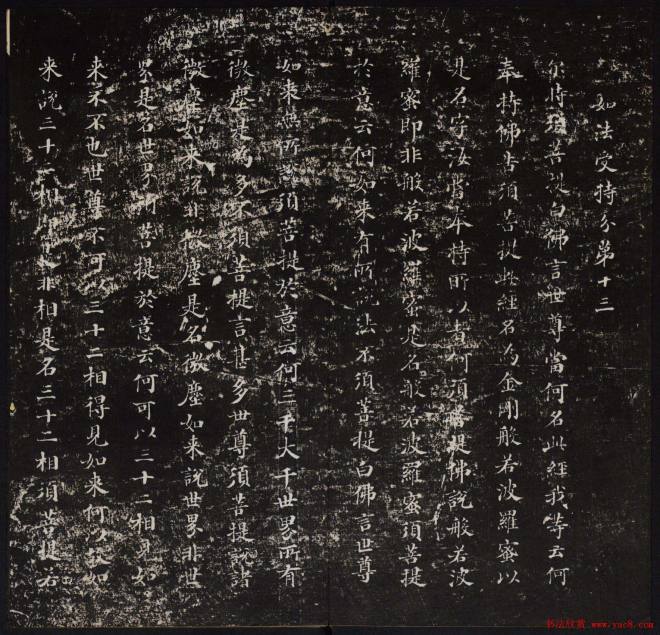 如法受持分第十三
尔時須菩提白佛言世尊當何名此經我等云何
奉持佛告須菩提此經名為金剛般若波羅蜜以
是名字汝當奉持所以者何須菩提佛說般若波
羅蜜即非般若波羅蜜是名般若波羅蜜須菩提
於意云何如来有所說法不須菩提白佛言世尊
如来無所說須菩提於意云何三千大千世界所有
微塵是為多不須菩提言甚多世尊須菩提說諸
微塵如来說非微塵是名微塵如来說世界非世
界是名世界須菩提於意云何可以三十二相見如
来不不也世尊不可以三十二相得見如来何以故如
来說三十二相即是非相是名三十二相須菩提若
书法欣赏 www.yac8.com